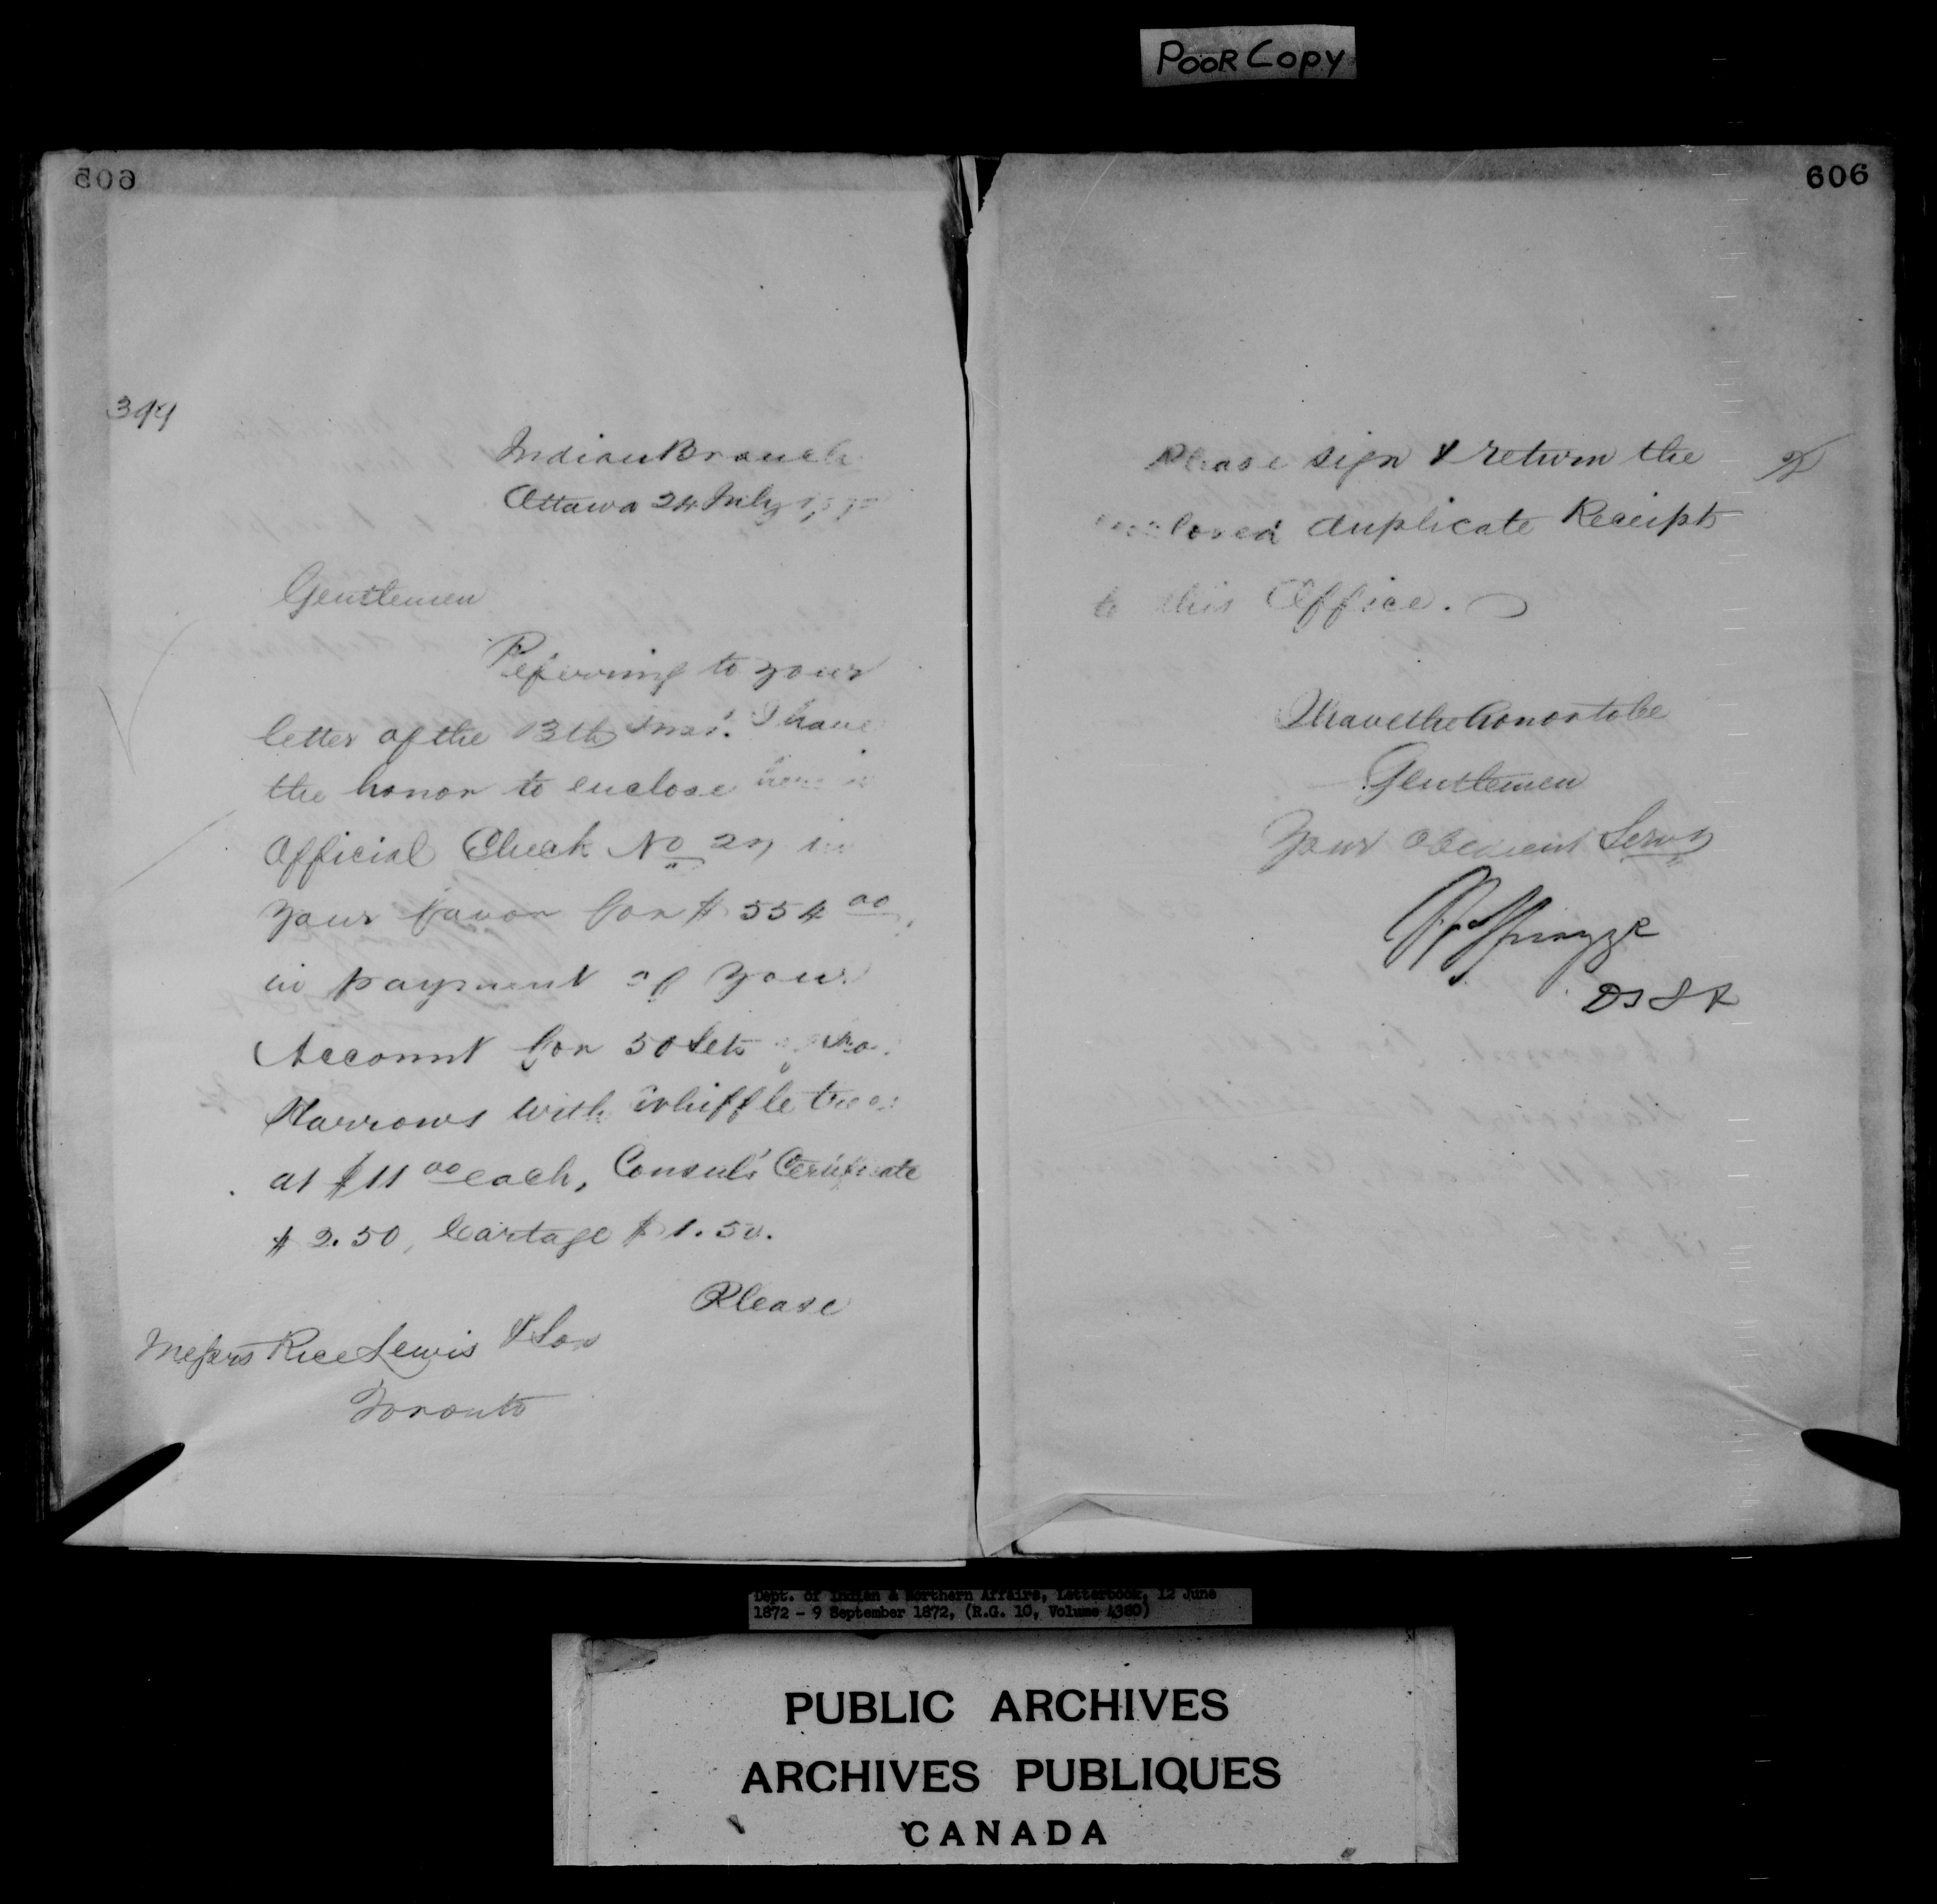 POOR COPY
606
Indian Branch
Ottawa 24 July
Gentlemen
Referring to your
letter of the 13th Inst. I have
the honor to enclose
Official Check No 27 in
your favor for $554 00
in payment of your
Account for 50 Sets
Harrows with whiffletrees
at $11 00 each, Consul's Certificate
$2.50, Cartage $1.50.
Please
Messrs Rice Lewis & Son
Toronto
606
Please sign & return the
enclosed duplicate Receipts
to this Office.
I have the honor to be
Gentlemen
Your Obedient Servt
Dept. of Indian & Northern Affairs, Letterbook, 12 June
1872 - 9 September 1872, (R.G. 10, Volume 4380)
PUBLIC ARCHIVES
ARCHIVES PUBLIQUES
CANADA